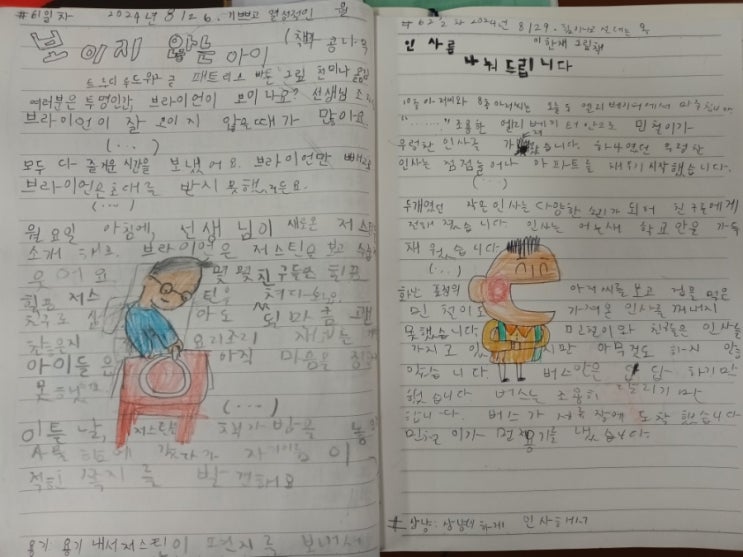 #61일차 2024년 8/26. 기쁘고 열정적인 월
보이지 않는 아이 (책콩나무
트루디 루드위그 글 패트리스 바튼 그림 천미나 옮김
여러분은 투명인간 브라이언이 보이나요? 선생님 조차
브라이언이 잘 보이지 않을때가 많아요.
(...)
모두 다 즐거운 시간을 보냈어요. 브라이언만 빼고요
브라이언은 초대를 받지 못했거든요.
(...)
월요일 아침에, 선생님이 새로운 저스틴을
소개 해요. 브라이언은 저스틴을 보고 수줍게
웃어요. 몇몇 친구들은 힐끔
힐끔 저스틴을 쳐다봐요.
친구로 삼아도 될 만큼 괜
찮은지 요리조리 재보는
아이들은 아직 마음을 정하지
못했어요.
(...)
이튿날, 저스틴은
사물함에 자기 이름이
적힌 쪽지를 발견해요
용기: 용기 내서 저스틴이 쪽지를 보내서
#62 2024년 8/29. 목
인사를 이한재 그림책
나눠드립니다
10층 아저씨와 8층 아저씨는 오늘도 엘리베이터에서 마주칩니다.
"......" 조용한 엘리베이터 안으로 민철이가
우렁찬 인사를 합니다. 하나였던 우렁찬
인사는 점점 늘어나 아파트를 채우기 시작했습니다.
(...)
두개였던 작은 인사는 다양한 소리가 되어 친구들에게
전해 졌습니다 인사는 어느새 학교 안을 가득
채웠습니다
(...)
화난 표정의 아저씨를 보고 겁을 먹은
민철이도 가져온 인사를 꺼내지
못했습니다. 민철이와 친구들은 인사를
가지고 있지만 아무것도 하지 않고
있습니다. 버스 안은 답답하기만
했습니다 버스는 조용히 달리기만
합니다. 버스가 서촌장에 도착했습니다
민철이가 먼저 용기를 냈습니다.
# 상냥: 상냥하게 인사하기